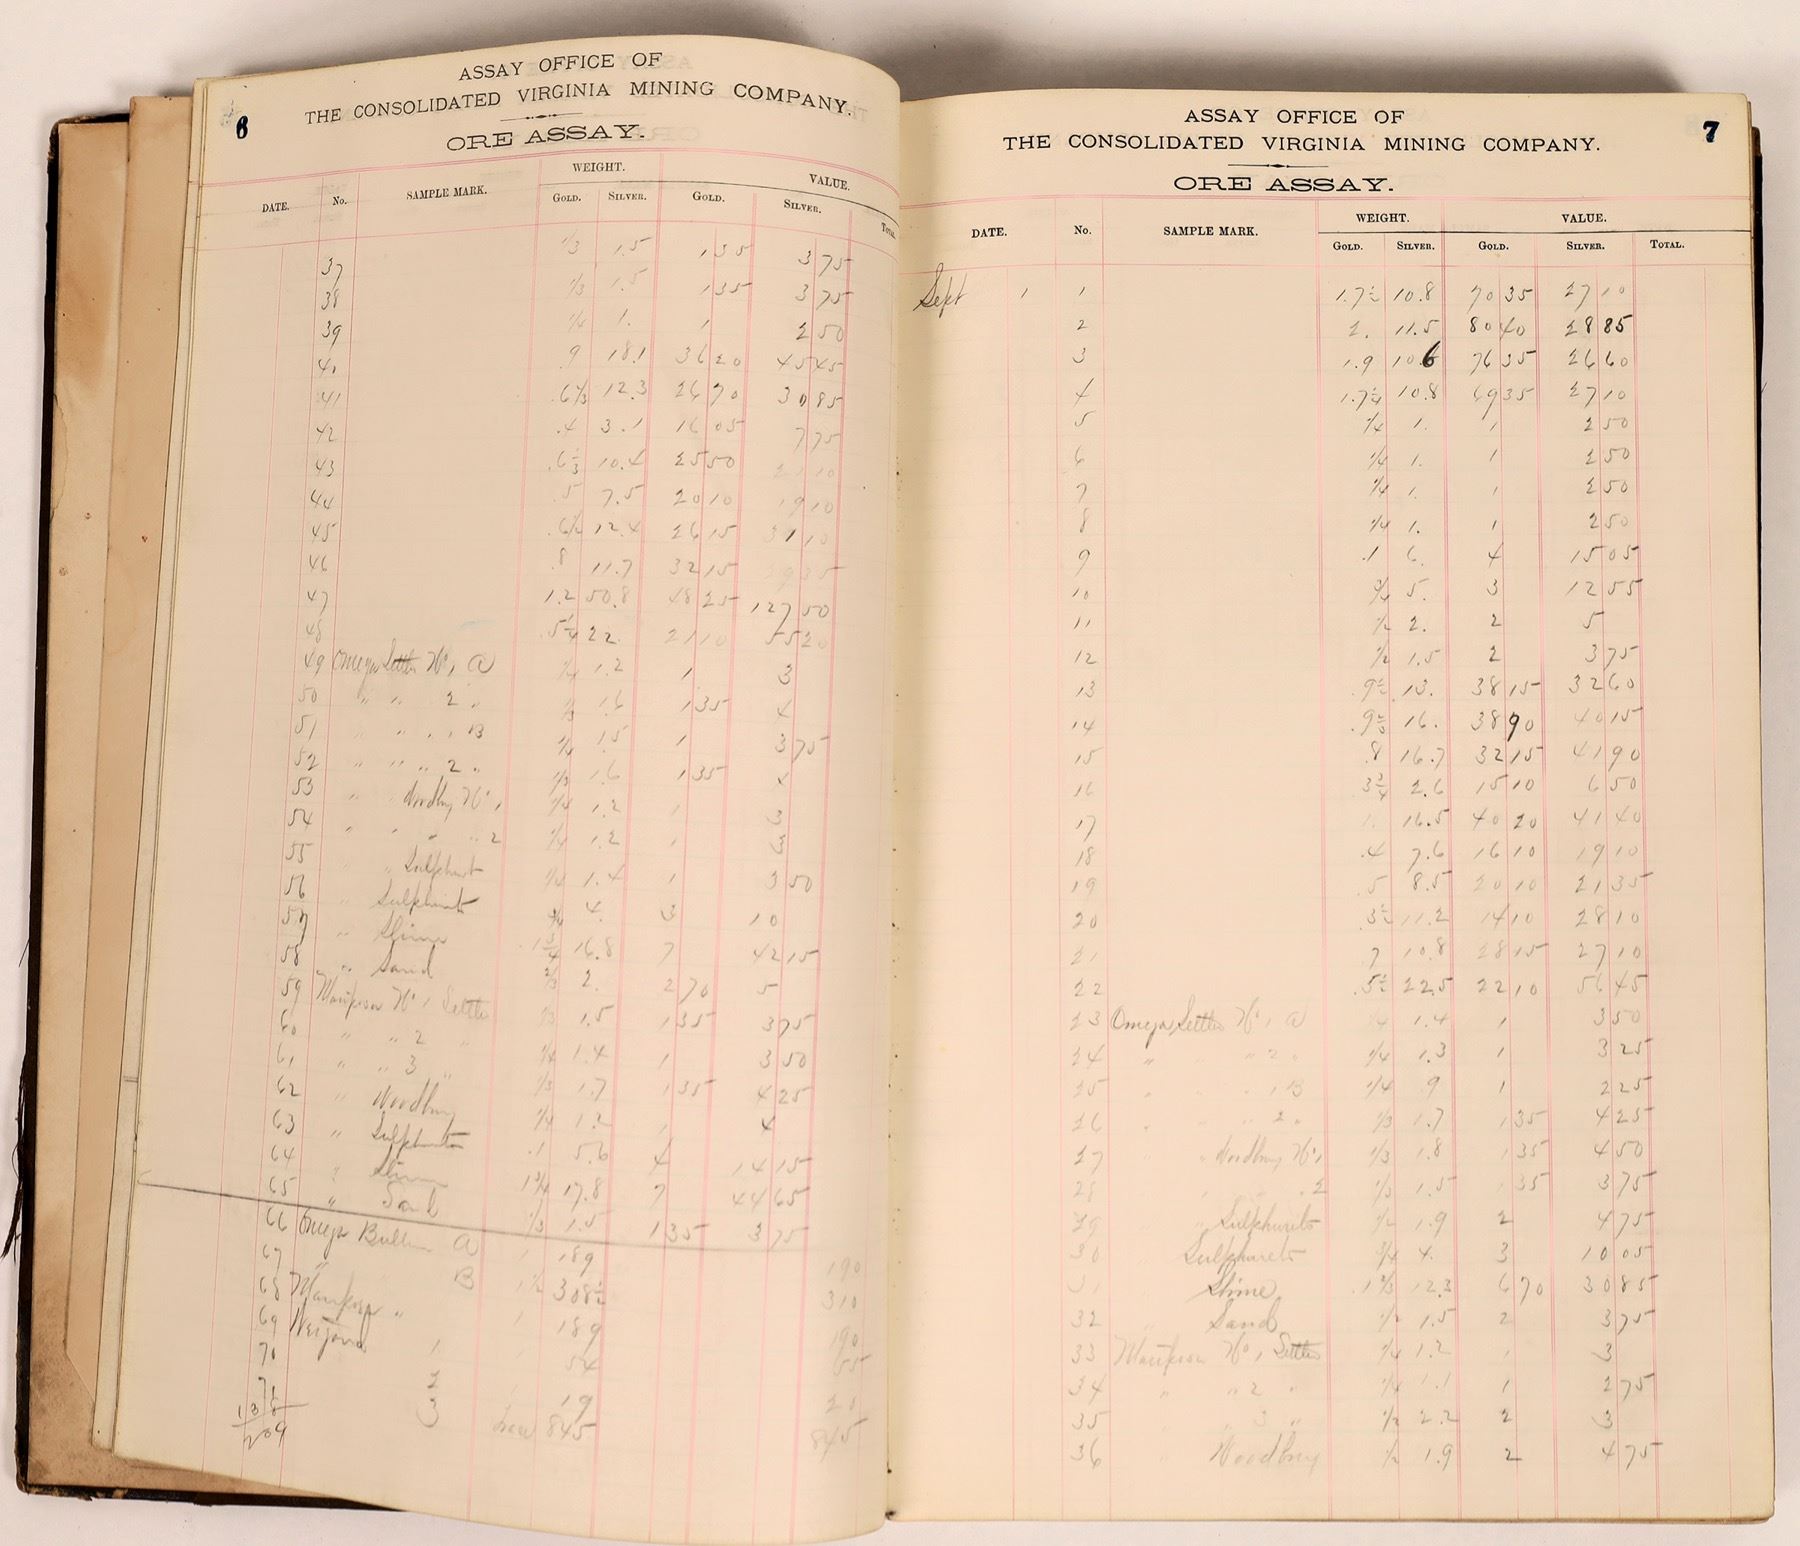 6
ASSAY OFFICE OF
THE CONSOLIDATED VIRGINIA MINING COMPANY.
ORE ASSAY.
DATE. No. SAMPLE MARK. WEIGHT. VALUE.
GOLD. SILVER. GOLD. SILVER. TOTAL.
37 1/3 1.5 1 35 3 75
38 1/3 1.5 1 35 3 75
39 1/4 1. 1 2 50
40 .9 18.1 36 20 45 45
41 .6 2/3 12.3 26 70 30 85
42 .4 3.1 16 05 7 75
43 .6 1/3 10.4 25 50
44 .5 7.5 20 10 19 10
45 .6 1/2 12.4 26 15 31 10
46 .8 11.7 32 15 29 35
47 1.2 50.8 48 25 127 50
48 .5 1/4 22. 21 10 55 20
49 Omega Settler No 1 A 1/4 1.2 1 3
50 " " 2 " 1/3 1.6 1 35 4
51 " " 1 B 1/4 1.5 1 3 75
52 " " " 2 " 1/3 1.6 1 35 4
53 " Woodbury No 1 1/4 1.2 1 3
54 " " " 2 1/4 1.2 1 3
55 " " Sulphuret 1/4 1.4 1 3 50
56 " Sulphurets 3/4 4. 3 10
57 " Slime .1 3/4 16.8 7 42 15
58 " Sand 2/3 2. 2 70 5
59 No 1 Settler 1/3 1.5 1 35 3 75
60 " " 2 " 1/4 1.4 1 3 50
61 " " 3 " 1/3 1.7 1 35 4 25
62 " Woodbury 1/4 1.2 1 4
63 " Sulphurets .1 5.6 4 14 15
64 " Slime 1 3/4 17.8 7 44 65
65 " Sand 1/3 1.5 1 35 3 75
66 Omega Bullion A 1 189 190
67 " B 1 1/2 308 1/2 310
68 " 1 189 190
69 1 54 55
70 2 19 20
71 3 845 845
138
209
7
ASSAY OFFICE OF
THE CONSOLIDATED VIRGINIA MINING COMPANY.
ORE ASSAY.
DATE. No. SAMPLE MARK. WEIGHT. VALUE.
GOLD. SILVER. GOLD. SILVER. TOTAL.
Sept 1 1 1.7 1/2 10.8 70 35 27 10
2 2. 11.5 80 40 28 85
3 1.9 10.6 76 35 26 60
4 1.7 1/4 10.8 69 35 27 10
5 1/4 1. 1 2 50
6 1/4 1. 1 2 50
7 1/4 1. 1 2 50
8 1/4 1. 1 2 50
9 .1 6. 4 15 05
10 3/4 5. 3 12 55
11 1/2 2. 2 5
12 1/2 1.5 2 3 75
13 .9 1/2 13. 38 15 32 60
14 .9 2/3 16. 38 90 40 15
15 .8 16.7 32 15 41 90
16 .3 3/4 2.6 15 10 6 50
17 1. 16.5 40 20 41 40
18 .4 7.6 16 10 19 10
19 .5 8.5 20 10 21 35
20 .3 1/2 11.2 14 10 28 10
21 .7 10.8 28 15 27 10
22 .5 1/2 22.5 22 10 56 45
23 Omega Settler No 1 A 1/4 1.4 1 3 50
24 " " " 2 " 1/4 1.3 1 3 25
25 " " 1 B 1/4 .9 1 2 25
26 " " " 2 " 1/3 1.7 1 35 4 25
27 " Woodbury No 1 1/3 1.8 1 35 4 50
28 " " 2 1/3 1.5 1 35 3 75
29 " " Sulphurets 1/2 1.9 2 4 75
30 Sulphurets 3/4 4. 3 10 05
31 Slime .1 2/3 12.3 6 70 30 85
32 " Sand 1/2 1.5 2 3 75
33 No 1 Settler 1/4 1.2 1 3
34 " " 2 " 1/4 1.1 1 2 75
35 " 3 " 1/2 2.2 2 3
36 " Woodbury 1/2 1.9 2 4 75